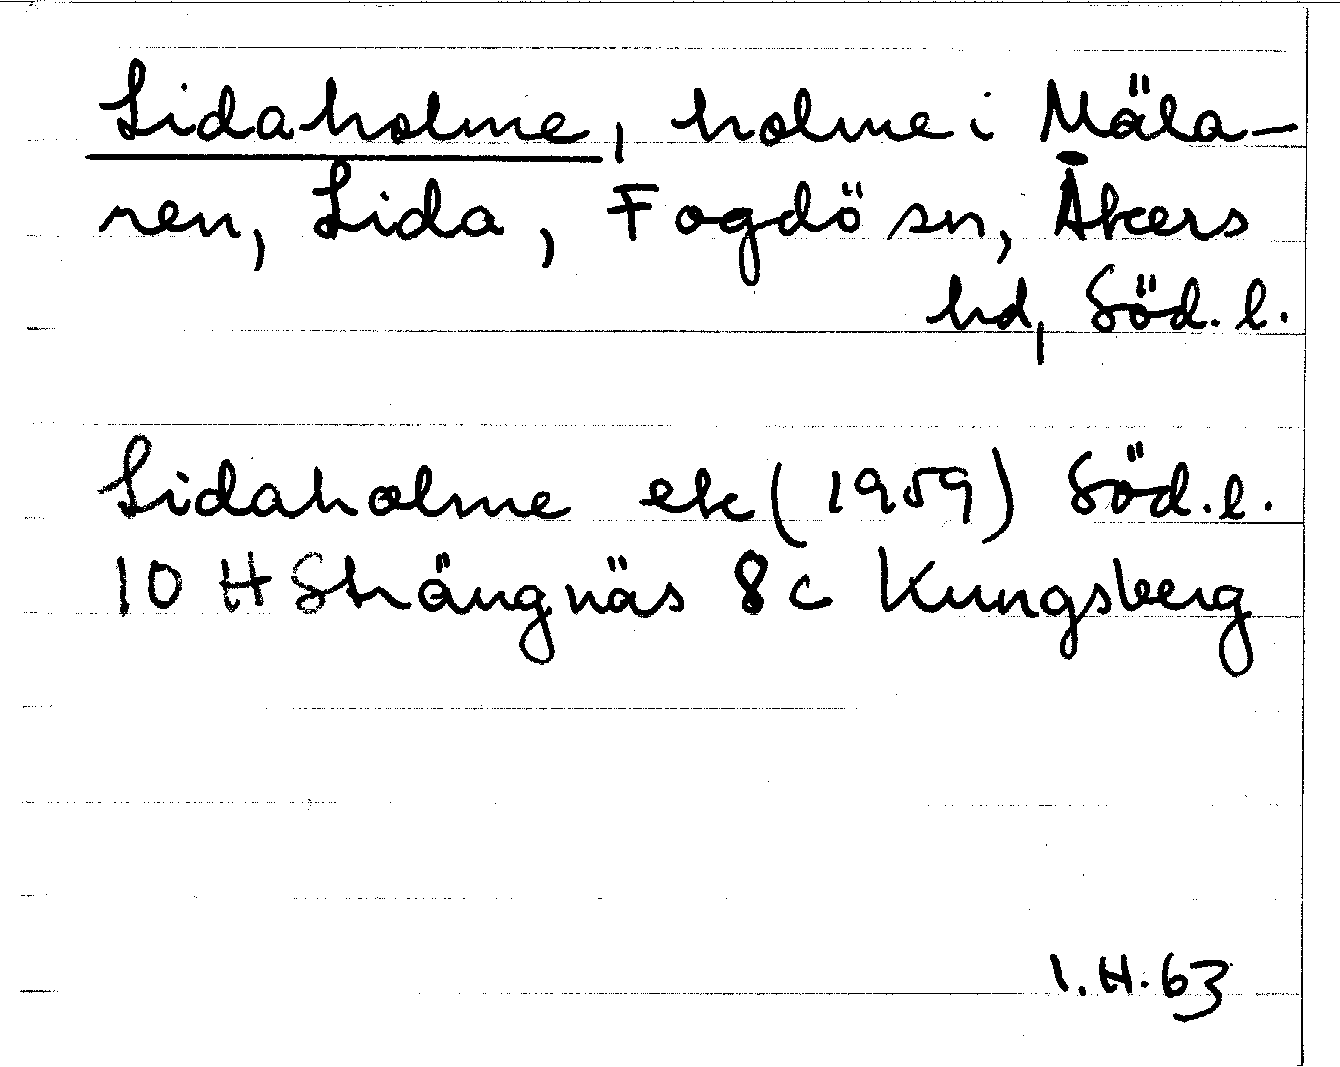 Lidaholme, holme i Mäla-
ren, Lida, Fogdö sn, Åkers
hd, Söd. l.
Lidaholme ek (1959) Söd. l.
10 H Strängnäs 8c Kungsberg
I.H. 63